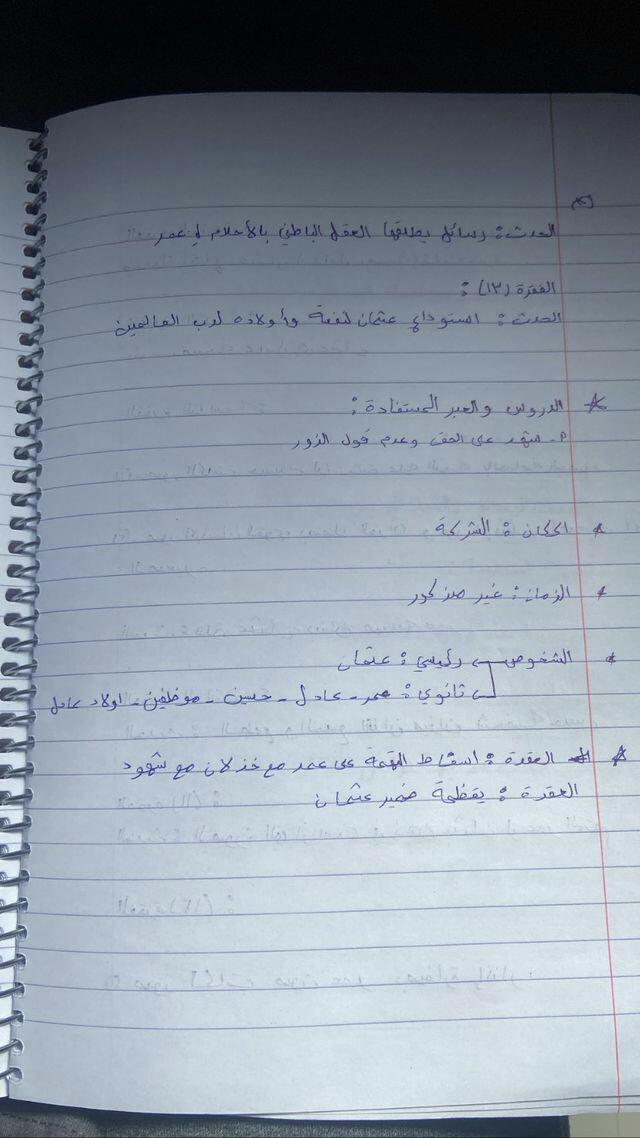 الحدث : رسائل يطلقها العقل الباطني بالأحلام لـ عمر
الفقرة (١٣) :
الحدث : استوداع عثمان لنفسة وأولاده لرب العالمين
* الدروس والعبر المستفادة :
٢- شهد على الحق وعدم قول الزور
* المكان : الشركة
* الزمان : غير مذكور
* الشخوص رئيسي : عثمان
ثانوي : عمر - عادل - حسين - موظفين - اولاد عادل
* العقدة : اسقاط التهمة على عمر مع خذلان مع شهود
العقدة : يقظة ضمير عثمان